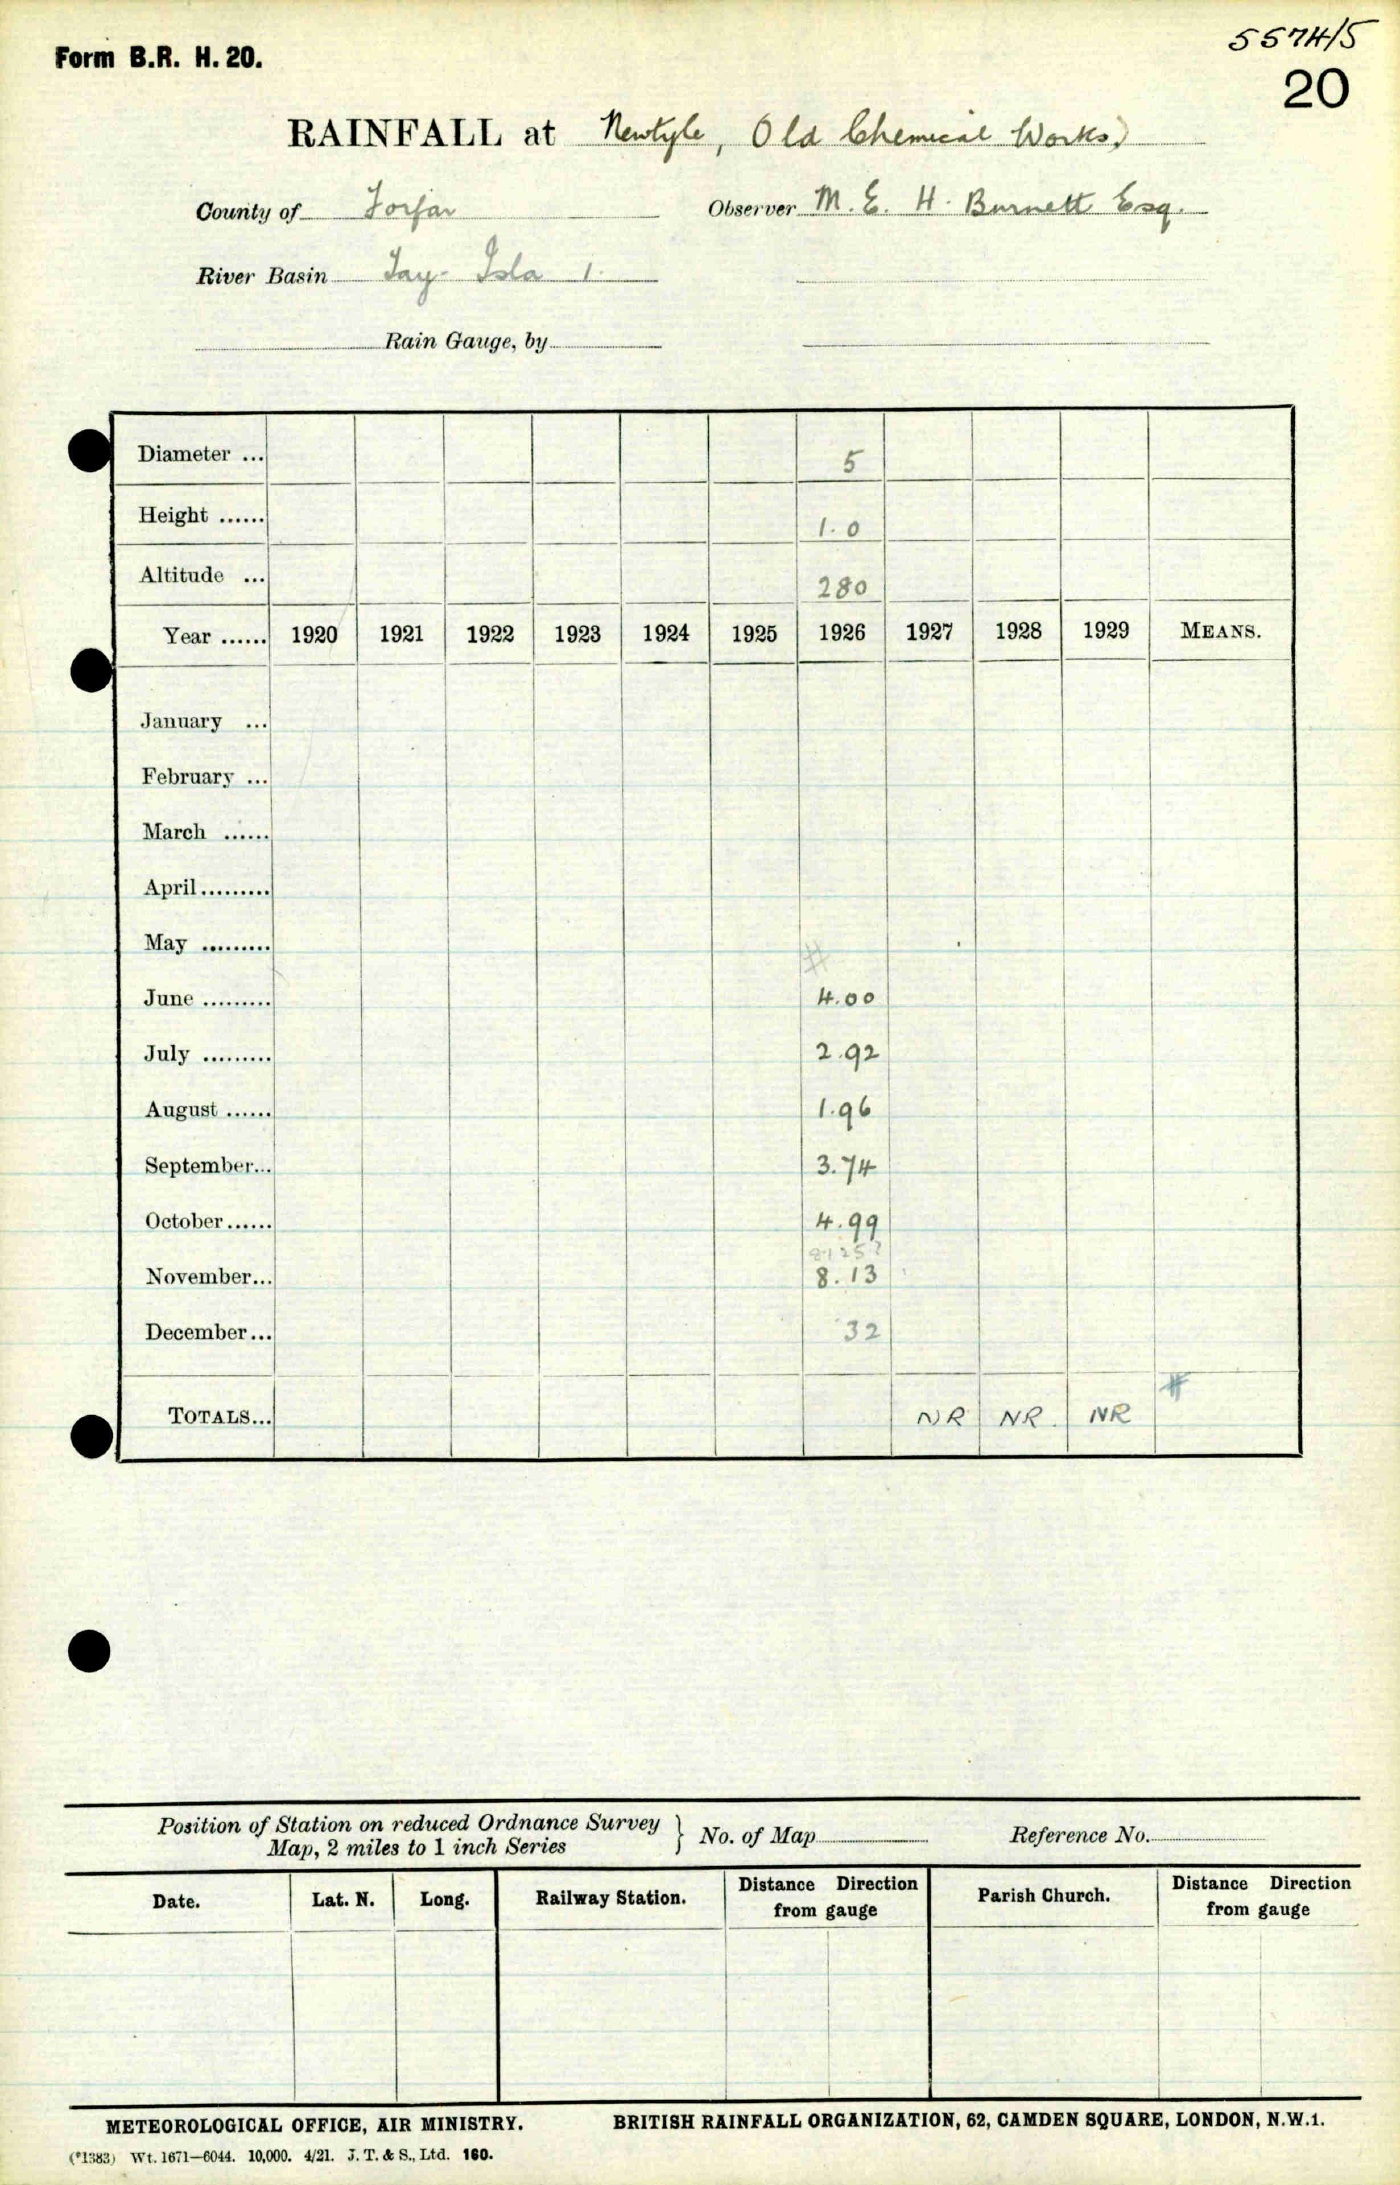 Form B.R. H. 20.
5574/5
20
RAINFALL at Newtyle, Old Chemical Works,
County of Forfar Observer M. E. H. Burnett Esq.
River Basin Tay - Isla 1.
Rain Gauge, by
Diameter ... 5
Height ...... 1.0
Altitude ... 280
Year ...... 1920 1921 1922 1923 1924 1925 1926 1927 1928 1929 MEANS.
January ...
February ...
March ......
April.........
May .........
#
June ......... 4.00
July ......... 2.92
August ...... 1.96
September... 3.74
October...... 4.99
8.125?
November... 8.13
December... 32
#
TOTALS... NR NR. NR
Position of Station on reduced Ordnance Survey
Map, 2 miles to 1 inch Series } No. of Map Reference No.
Date. Lat. N. Long. Railway Station. Distance Direction from gauge Parish Church. Distance Direction from gauge
METEOROLOGICAL OFFICE, AIR MINISTRY. BRITISH RAINFALL ORGANIZATION, 62, CAMDEN SQUARE, LONDON, N.W.1.
(*1383) Wt. 1671—6044. 10,000. 4/21. J. T. & S., Ltd. 160.